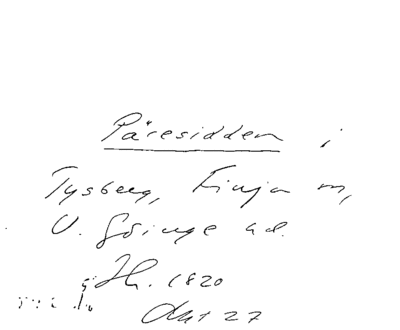 Päresidden i
Tysberg, Finja sn,
V. Göinge hd.
Jh. 1820
27